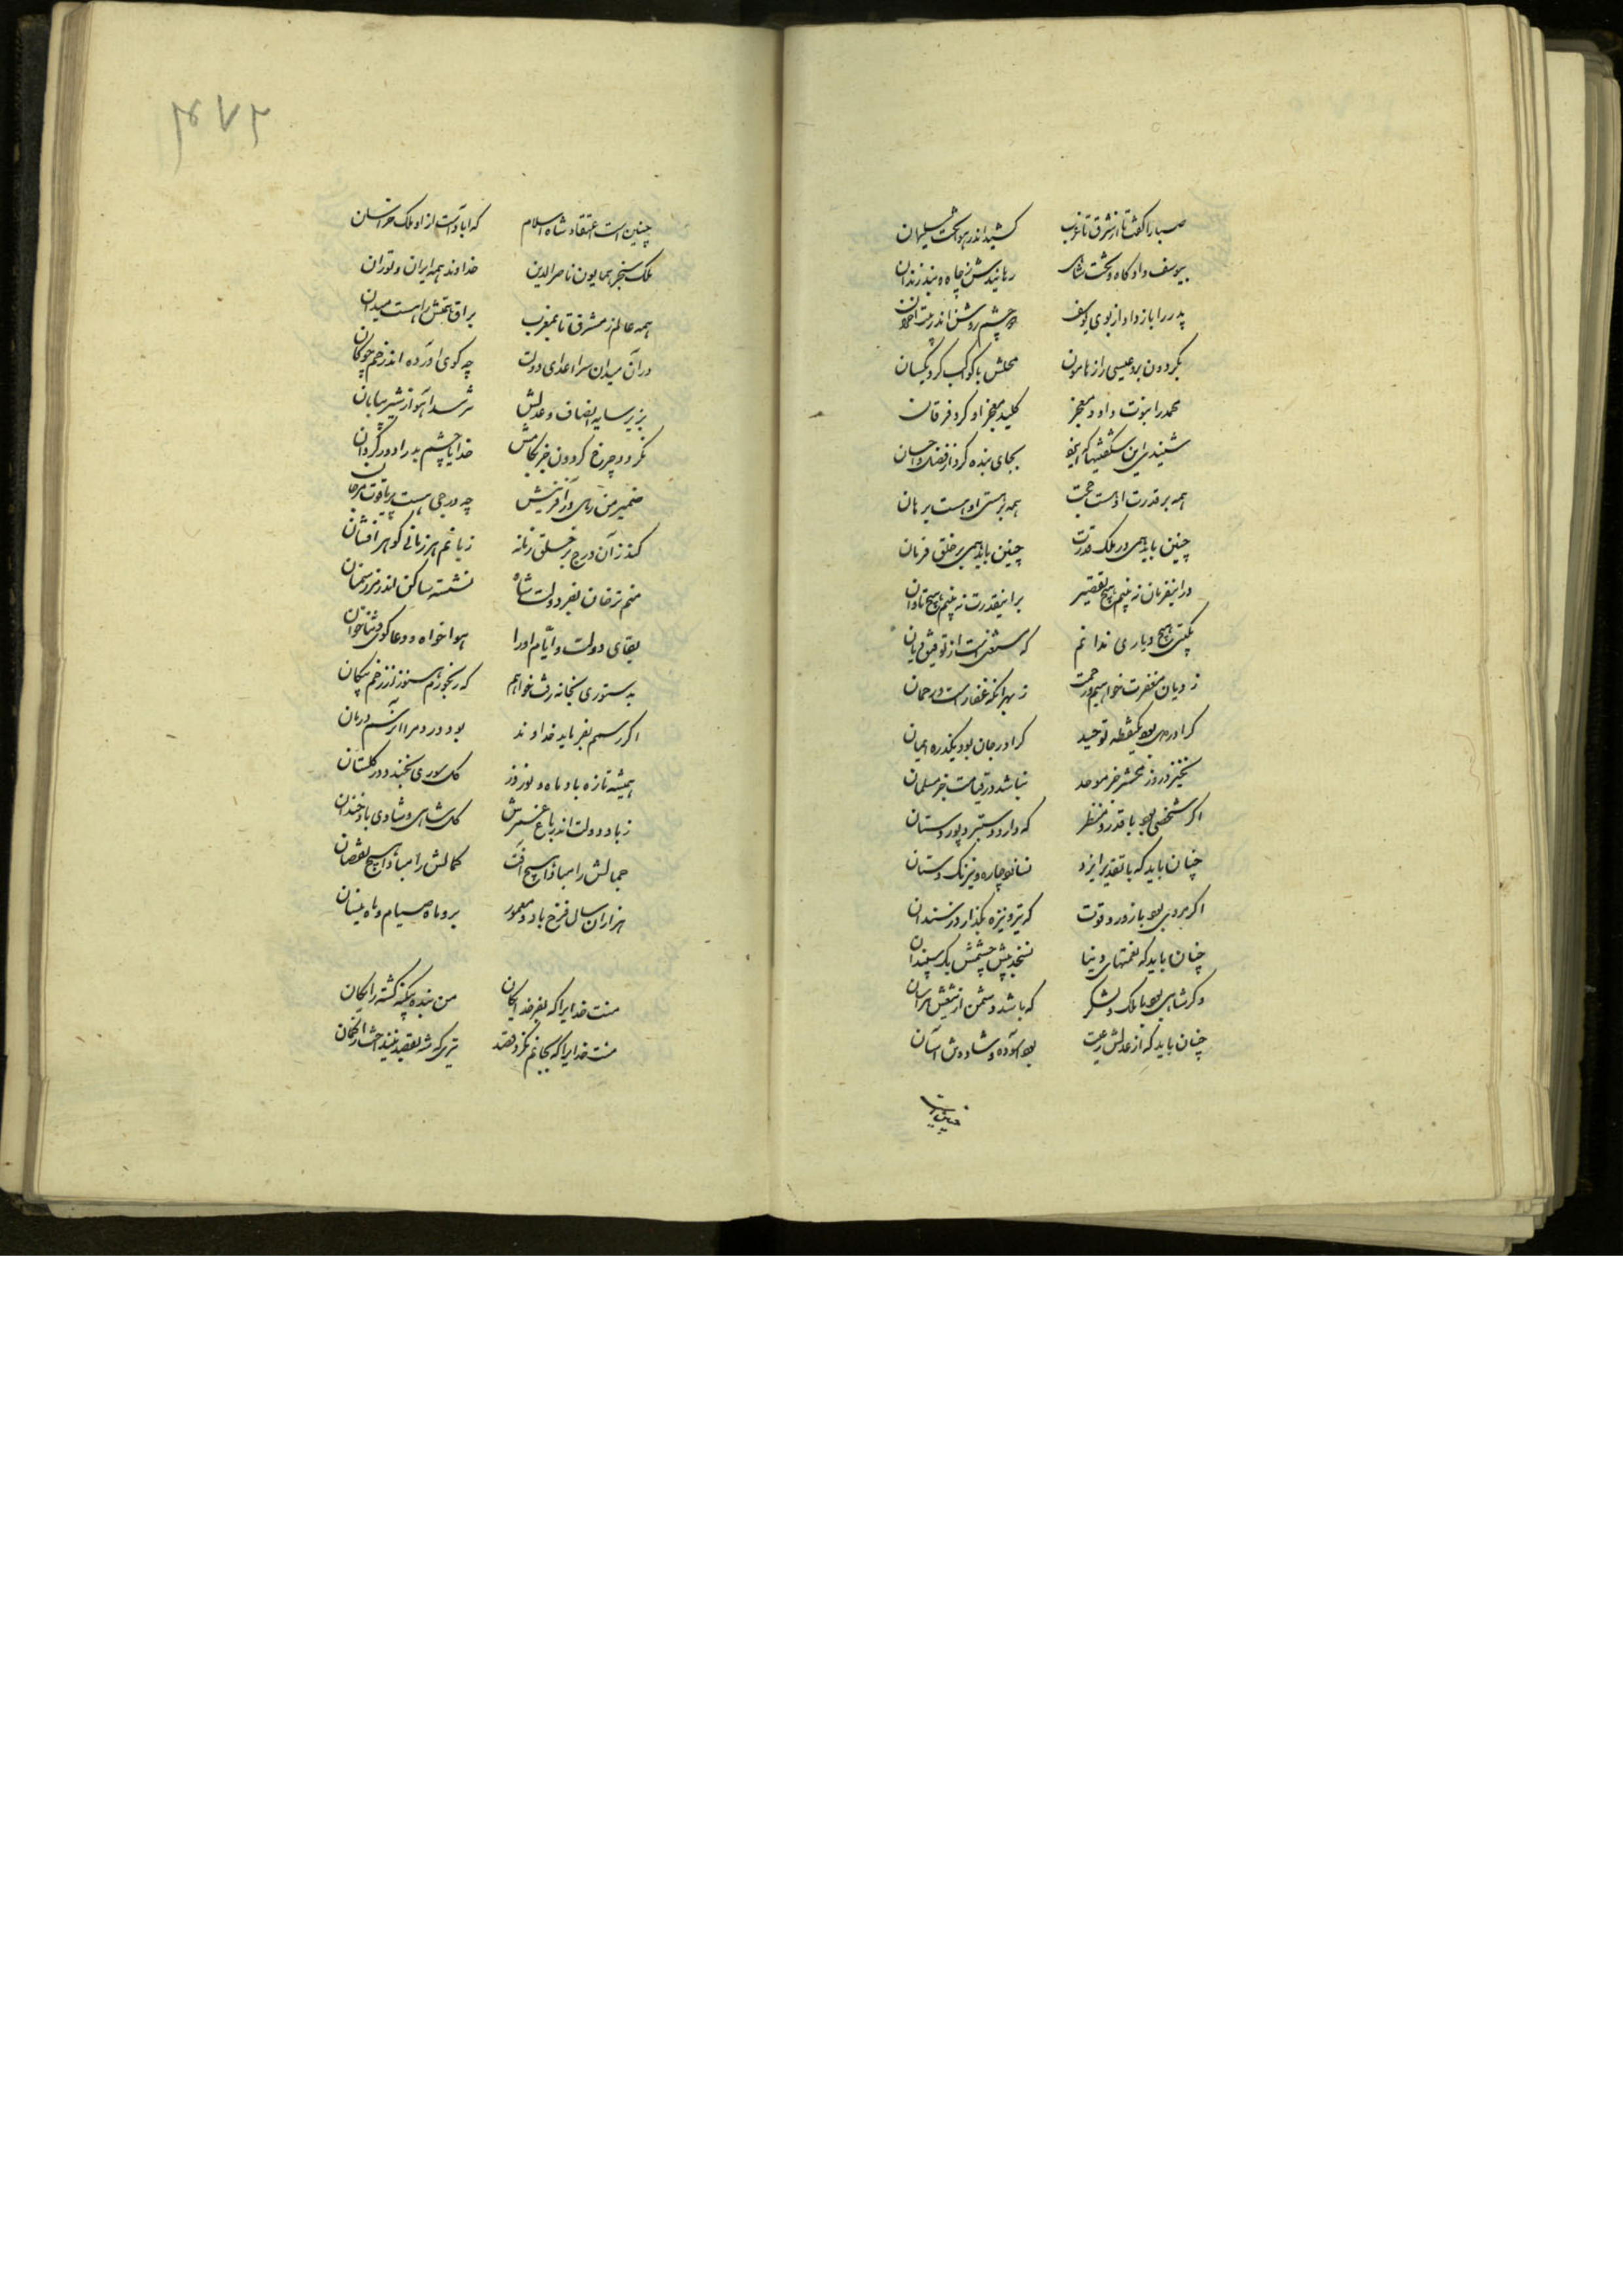 صبا را گفت تا از مشرق تا غرب کشید اندر هوا تخت سلیمان
بیوسف داد گاه و تخت شاهی رهانیدش ز چاه و بند زندان
پدر را باز داد از بوی یوسف دو چشم روشن اندر بیت احزان
بگردون برد عیسی را ز هامون محلش با کواکب کرد یکسان
محمد را نبوت داد و معجز کلید معجز او کرد فرقان
شنیدی این شگفتیها که ایزد بجای بنده کرد از فضل و احسان
همه بر قدرت اوست حجت همه بر هستی او هست برهان
چنین باید همی در ملک قدرت چنین باید همی بر خلق فرمان
در اینفرمان نه بینم هیچ تقصیر بر اینقدرت نه بینم هیچ تاوان
بگیتی هیچ دیاری ندانم که مستغنی است از توفیق دیان
ز دیان مغفرت خواهیم و رحمت ز بهر آنکه غفار است و رحمان
کرا در دل بود یکنقطه توحید کرا در جان بود یکذره ایمان
نخیزد روز محشر جز موحد نباشد در قیامت جز مسلمان
اگر شخصی بود با قدر و منظر که دارد دستبرد پور دستان
چنان باید که با تقدیر ایزد نسازد چاره و نیرنگ و دستان
اگر مردی بود با زور و قوت که تیر و نیزه بگذارد ز سندان
چنان باید که نعمتهای دنیا نسنجد پیش چشمش یک سپندان
وگر شاهی بود با ملک و لشکر که باشد دشمن از تیغش هراسان
چنان باید که از عدلش رعیت بود آسوده و شاد و تن آسان
چنین است
۴۷۲
چنین است اعتقاد شاه اسلام که آبادست از او ملک خراسان
ملک سنجر همایون ناصرالدین خداوند همه ایران و توران
همه عالم ز مشرق تا بمغرب براق همتش را هست میدان
در آن میدان سر اعدای دولت چو گوی آورده اندر خم چوگان
بزیر سایه انصاف و عدلش نترسد آهو از شیر بیابان
نگردد چرخ گردون جز بکامش خدایا چشم بد را دور گردان
ضمیر من رهی در آفرینش چه درجی هست پر یاقوت و مرجان
کند زان درج بر خلق زمانه زبانم هر زمانی گوهر افشان
منم ترخان بفر دولت شاه نشسته ساکن اندر مرز ترخان
بقای دولت و ایام او را هوا خواه و دعا گوی و ثنا خوان
بدستوری بخانه رفت خواهم که رنجورم هنوز از زخم پیکان
اگر رسم بفرماید خداوند بود درد مرا آن رسم درمان
همیشه تازه باد ماه و نوروز گل سوری بخندد در گلستان
ز باد دولت اندر باغ عمرش گل شاهی و شادی باد خندان
جمالش را مبادا هیچ آفت کمالش را مبادا هیچ نقصان
هزاران سال فرخ باد و معمور برو ماه صیام و ماه نیسان
منت خدایرا که بفر خدایگان من بنده بیگنه نشدم کشته رایگان
منت خدایرا که بجانم نکرد قصد تیری که شه بقصد نینداخت از کمان